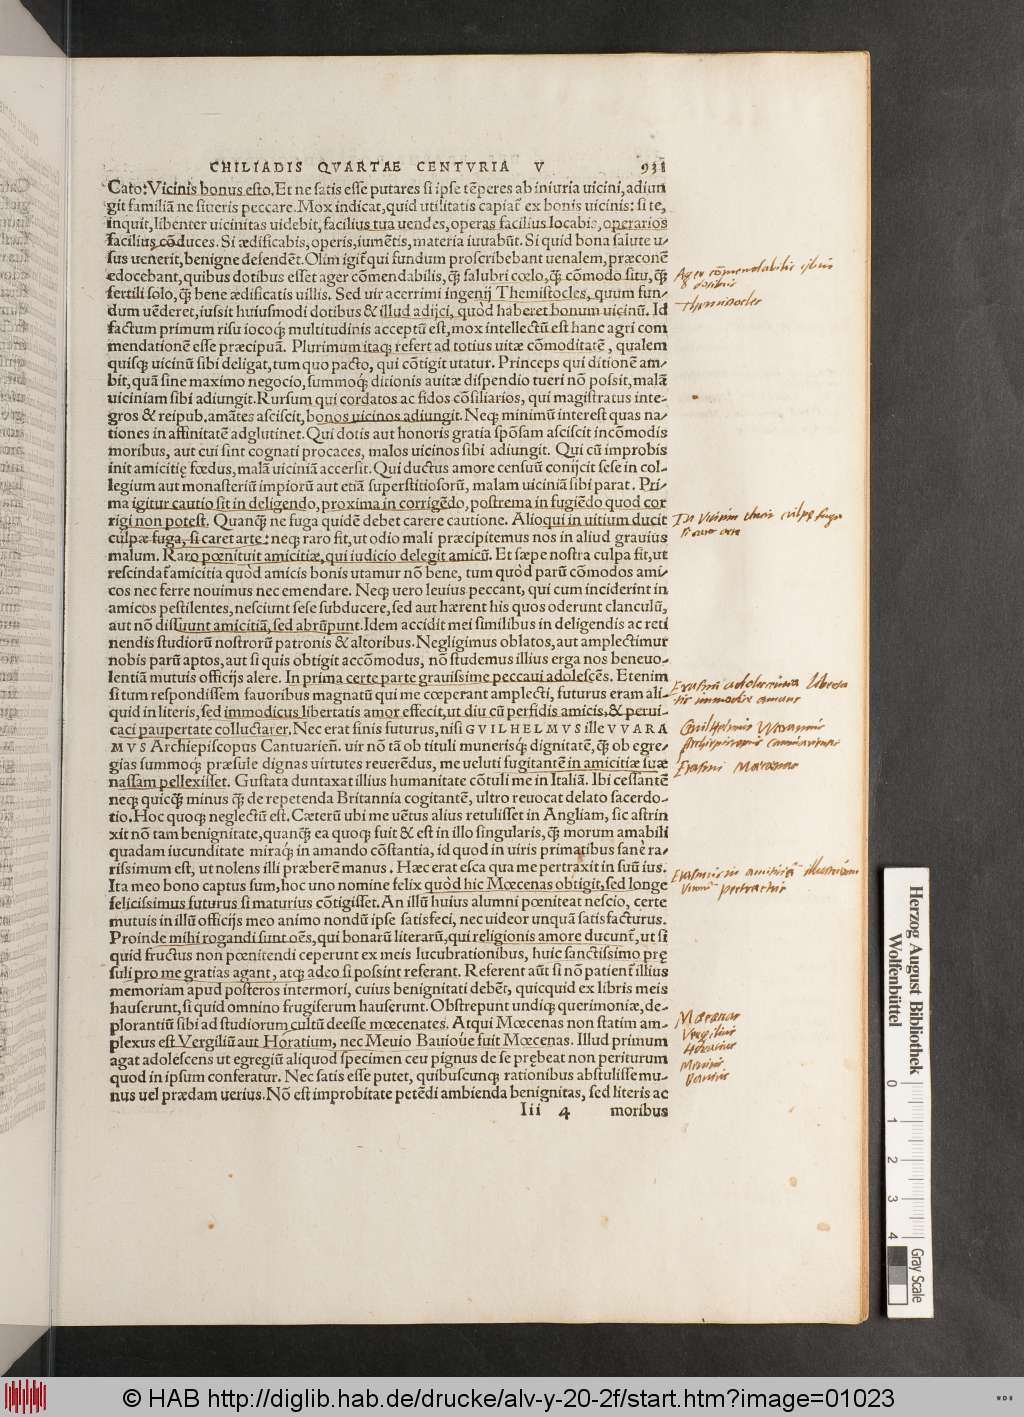 CHILIADIS QVARTAE CENTVRIA V 931
Cato: Vicinis bonus esto. Et ne satis esse putares si ipse tẽperes ab iniuria uicini, adiun
git familiã ne siueris peccare. Mox indicat, quid utilitatis capiat̃ ex bonis uicinis: si te,
inquit, libenter uicinitas uidebit, facilius tua uendes, operas facilius locabis, operarios
facilius cõduces. Si ædificabis, operis, iumẽtis, materia iuuabũt. Si quid bona salute u-
sus uenerit, benigne defendẽt. Olim igit̃ qui fundum proscribebant uenalem, præconẽ
edocebant, quibus dotibus esset ager cõmendabilis, q̃ salubri cœlo, q̃ cõmodo situ, q̃
fertili solo, q̃ bene ædificatis uillis. Sed uir acerrimi ingenij Themistocles, quum fun-
dum uẽderet, iussit huiusmodi dotibus & illud adijci, quòd haberet bonum uicinũ. Id
factum primum risu iocoq́; multitudinis acceptũ est, mox intellectũ est hanc agri com
mendationẽ esse præcipuã. Plurimum itaq; refert ad totius uitæ cõmoditatẽ, qualem
quisq; uicinũ sibi deligat, tum quo pacto, qui cõtigit utatur. Princeps qui ditionẽ am-
bit, quã sine maximo negocio, summoq́; ditionis auitæ dispendio tueri nõ possit, malã
uiciniam sibi adiungit. Rursum qui cordatos ac fidos cõsiliarios, qui magistratus inte-
gros & reipub. amãtes asciscit, bonos uicinos adiungit. Neq; minimũ interest quas na-
tiones in affinitatẽ adglutinet. Qui dotis aut honoris gratia spõsam asciscit incõmodis
moribus, aut cui sint cognati procaces, malos uicinos sibi adiungit. Qui cũ improbis
init amicitię fœdus, malã uiciniã accersit. Qui ductus amore censuũ conijcit sese in col-
legium aut monasteriũ impiorũ aut etiã superstitiosorũ, malam uiciniã sibi parat. Pri-
ma igitur cautio sit in deligendo, proxima in corrigẽdo, postrema in fugiẽdo quod cor
rigi non potest. Quanq̃ ne fuga quidẽ debet carere cautione. Alioqui in uitium ducit
culpæ fuga, si caret arte: neq; raro fit, ut odio mali præcipitemus nos in aliud grauius
malum. Raro pœnituit amicitiæ, qui iudicio delegit amicũ. Et sæpe nostra culpa fit, ut
rescindat̃ amicitia quòd amicis bonis utamur nõ bene, tum quòd parũ cõmodos ami-
cos nec ferre nouimus nec emendare. Neq; uero leuius peccant, qui cum inciderint in
amicos pestilentes, nesciunt sese subducere, sed aut hærent his quos oderunt clanculũ,
aut nõ dissuunt amicitiã, sed abrũpunt. Idem accidit mei similibus in deligendis ac reti
nendis studiorũ nostrorũ patronis & altoribus. Negligimus oblatos, aut amplectimur
nobis parũ aptos, aut si quis obtigit accõmodus, nõ studemus illius erga nos beneuo-
lentiã mutuis officijs alere. In prima certe parte grauissime peccaui adolescẽs. Etenim
si tum respondissem fauoribus magnatũ qui me cœperant amplecti, futurus eram ali-
quid in literis, sed immodicus libertatis amor effecit, ut diu cũ perfidis amicis, & perui-
caci paupertate colluctarer. Nec erat finis futurus, nisi GVILHELMVS ille VVARA
MVS Archiepiscopus Cantuarieñ. uir nõ tã ob tituli munerisq́; dignitatẽ, q̃ ob egre-
gias summoq́; præsule dignas uirtutes reuerẽdus, me ueluti fugitantẽ in amicitiæ suæ
nassam pellexisset. Gustata duntaxat illius humanitate cõtuli me in Italiã. Ibi cessantẽ
neq; quicq̃ minus q̃ de repetenda Britannia cogitantẽ, ultro reuocat delato sacerdo-
tio. Hoc quoq; neglectũ est. Cæterũ ubi me uẽtus alius retulisset in Angliam, sic astrin
xit nõ tam benignitate, quanq̃ ea quoq; fuit & est in illo singularis, q̃ morum amabili
quadam iucunditate miraq́; in amando cõstantia, id quod in uiris primatibus sanè ra-
rissimum est, ut nolens illi præberẽ manus. Hæc erat esca qua me pertraxit in suũ ius.
Ita meo bono captus sum, hoc uno nomine felix quòd hic Mœcenas obtigit, sed longe
felicissimus futurus si maturius cõtigisset. An illũ huius alumni pœniteat nescio, certe
mutuis in illũ officijs meo animo nondũ ipse satisfeci, nec uideor unquã satisfacturus.
Proinde mihi rogandi sunt oẽs, qui bonarũ literarũ, qui religionis amore ducunt̃, ut si
quid fructus non pœnitendi ceperunt ex meis lucubrationibus, huic sanctissimo prę
suli pro me gratias agant, atq; adeo si possint referant. Referent aũt si nõ patient̃ illius
memoriam apud posteros intermori, cuius benignitati debẽt, quicquid ex libris meis
hauserunt, si quid omnino frugiferum hauserunt. Obstrepunt undiq; querimoniæ, de-
plorantiũ sibi ad studiorum cultũ deesse mœcenates. Atqui Mœcenas non statim am-
plexus est Vergiliũ aut Horatium, nec Meuio Bauioue fuit Mœcenas. Illud primum
agat adolescens ut egregiũ aliquod specimen ceu pignus de se prębeat non periturum
quod in ipsum conferatur. Nec satis esse putet, quibuscunq; rationibus abstulisse mu-
nus uel prædam uerius. Nõ est improbitate petẽdi ambienda benignitas, sed literis ac
Iii 4 moribus
Ager cõmendabilis
dotibus
Themistocles
In vitium ducit culpę fuga
si caret arte
Erasmi adolescentia liberta
tis immodice amans
Guilhelmus Waramus
Archiepiscopus Cantuariensis
Erasmi Mœcenas
Erasmus in amicitiã illustrium
virorũ pertractus
Mœcenas
Vergilius
Horatius
Mevius
Bavius
Herzog August Bibliothek
Wolfenbüttel
0
1
2
3
4
Gray Scale
© HAB http://diglib.hab.de/drucke/alv-y-20-2f/start.htm?image=01023
WDB